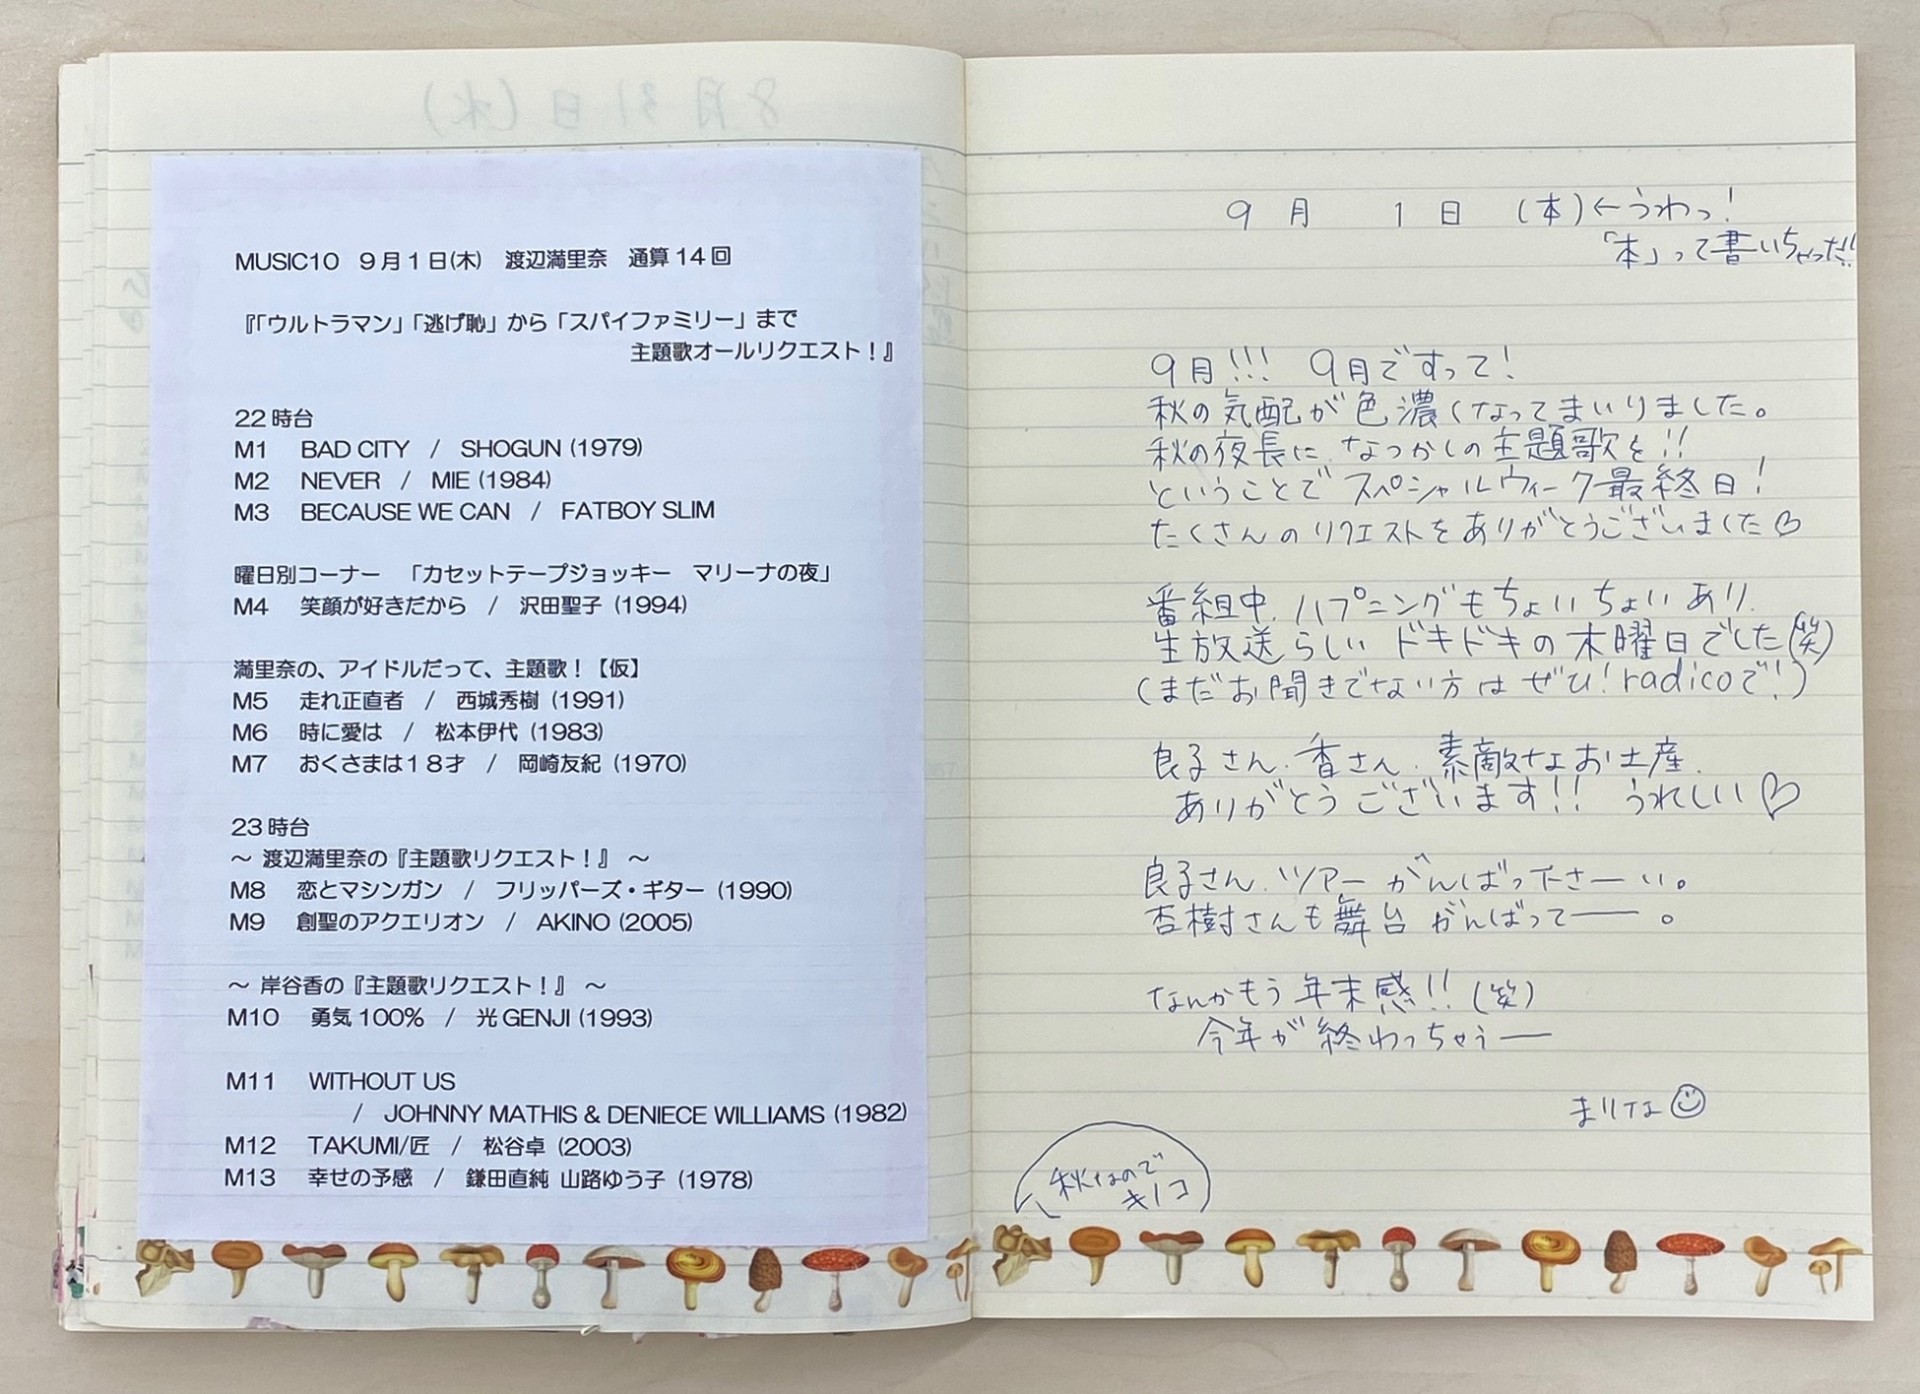 8月31日(水)
MUSIC10 9月1日(木) 渡辺満里奈 通算14回
『「ウルトラマン」「逃げ恥」から「スパイファミリー」まで
主題歌オールリクエスト！』
22時台
M1 BAD CITY / SHOGUN (1979)
M2 NEVER / MIE (1984)
M3 BECAUSE WE CAN / FATBOY SLIM
曜日別コーナー 「カセットテープジョッキー マリーナの夜」
M4 笑顔が好きだから / 沢田聖子 (1994)
満里奈の、アイドルだって、主題歌！【仮】
M5 走れ正直者 / 西城秀樹 (1991)
M6 時に愛は / 松本伊代 (1983)
M7 おくさまは18才 / 岡崎友紀 (1970)
23時台
～ 渡辺満里奈の『主題歌リクエスト！』 ～
M8 恋とマシンガン / フリッパーズ・ギター (1990)
M9 創聖のアクエリオン / AKINO (2005)
～ 岸谷香の『主題歌リクエスト！』 ～
M10 勇気100% / 光GENJI (1993)
M11 WITHOUT US
/ JOHNNY MATHIS & DENIECE WILLIAMS (1982)
M12 TAKUMI/匠 / 松谷卓 (2003)
M13 幸せの予感 / 鎌田直純 山路ゆう子 (1978)
9月 1日 (本)←うわっ！
「本」って書いちゃった!!
9月!!! 9月ですって！
秋の気配が色濃くなってまいりました。
秋の夜長に、なつかしの主題歌を!!
ということでスペシャルウィーク最終日！
たくさんのリクエストをありがとうございました♡
番組中、ハプニングもちょいちょいあり、
生放送らしい ドキドキの木曜日でした(笑)
(まだお聞きでない方は ぜひ！radicoで！)
良子さん、香さん、素敵なお土産、
ありがとうございます!! うれしい♡
良子さん、ツアー がんばって下さーい。
杏樹さんも舞台 がんばってー。
なんかもう年末感!!(笑)
今年が終わっちゃうー
まりな☺
秋なので
キノコ